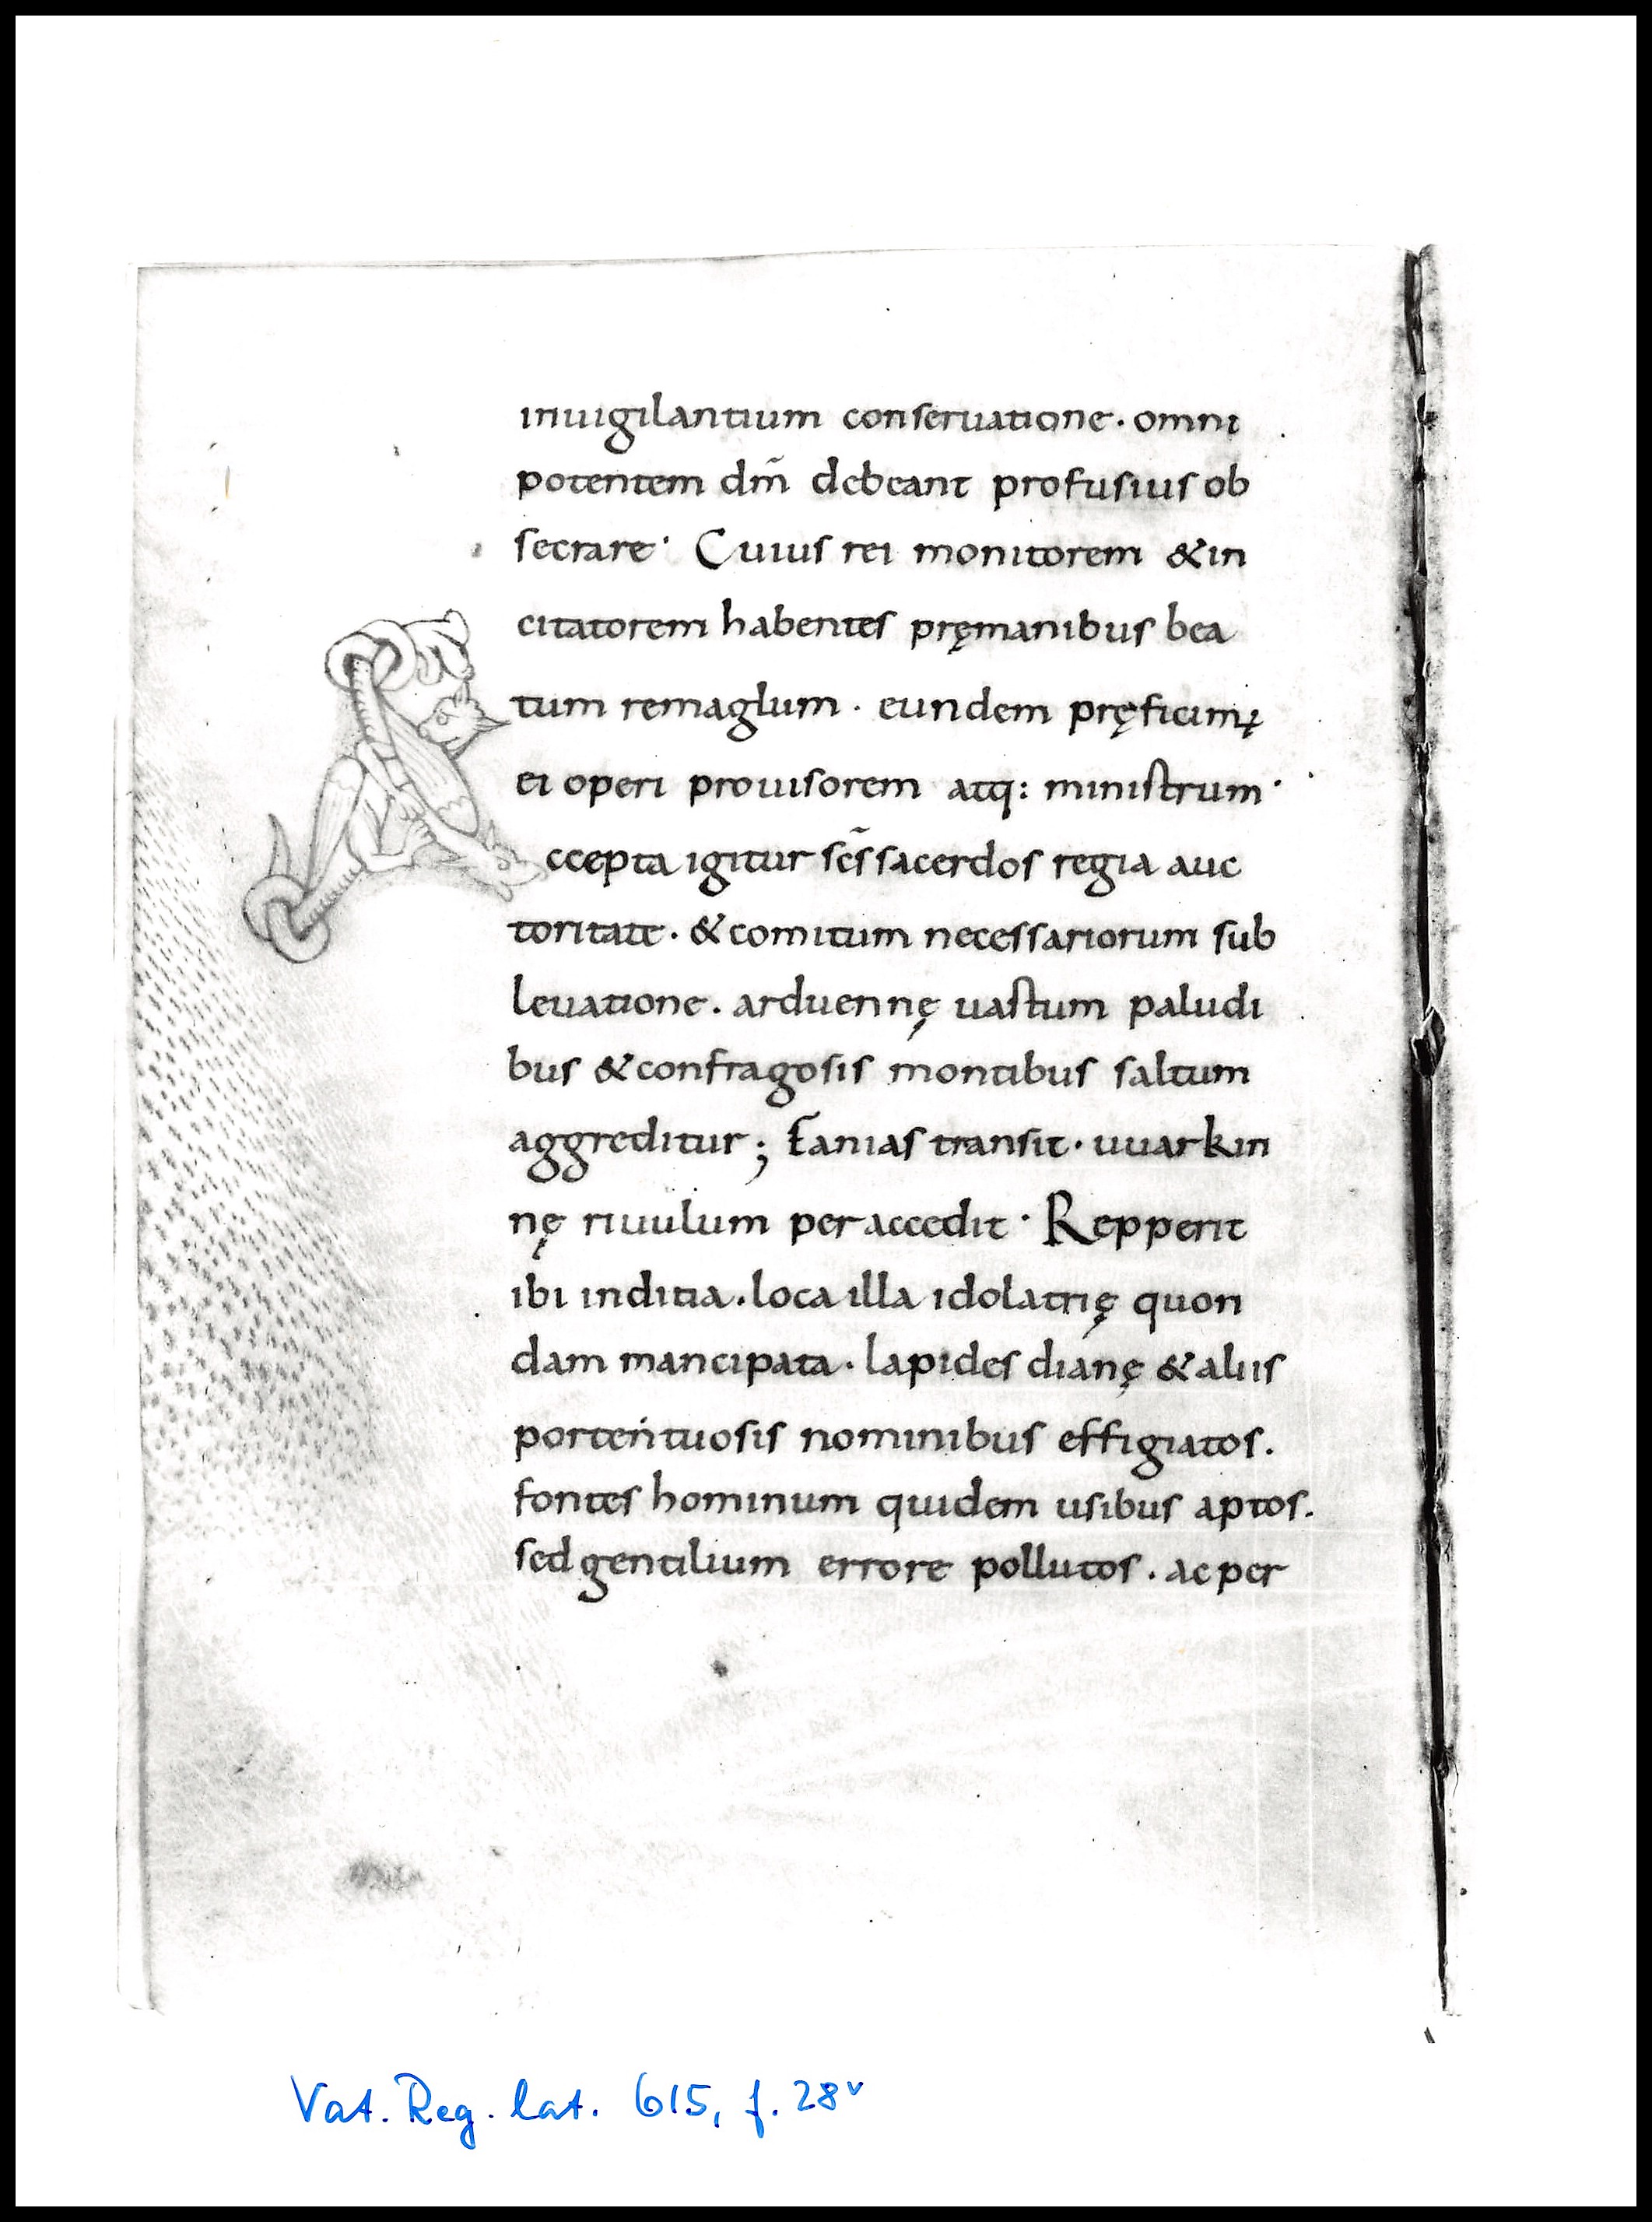 inuigilantium conseruatione · omni
potentem dm̄ debeant profusius ob
secrare · Cuius rei monitorem & in
citatorem habentes pręmanibus bea
tum remaglum · eundem pręficimꝫ
ei operi prouisorem atq: ministrum ·
Accepta igitur scs̄ sacerdos regia auc
toritate · & comitum necessariorum sub
leuatione · arduennę uastum paludi
bus & confragosis montibus saltum
aggreditur ; Fanias transit · uuarkin
nę riuulum per accedit · Repperit
ibi inditia · loca illa idolatrię quon
dam mancipata · lapides dianę & aliis
portentuosis nominibus effigiatos ·
fontes hominum quidem usibus aptos ·
sed gentilium errore pollutos · ac per
Vat. Reg. lat. 615, f. 28v